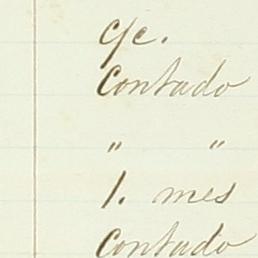 c/c.
Contado
" "
1. mes
Contado